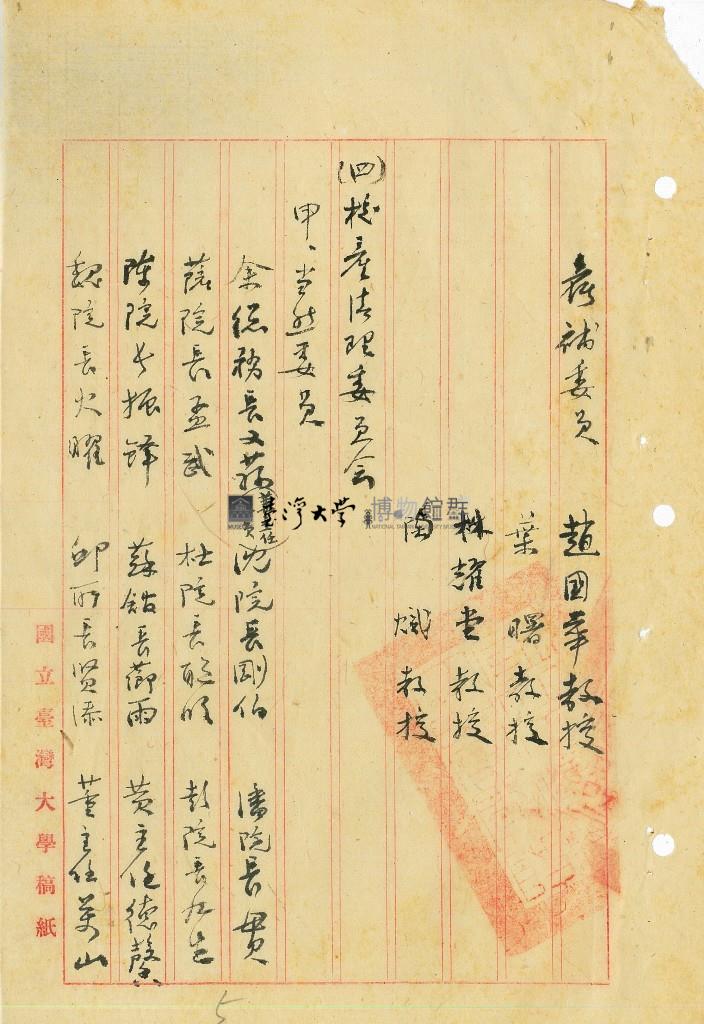 候補委員 趙國華教授
葉曙教授
林耀堂教授
陶熾教授
(四)校產清理委員会
甲、当然委員
余總務長又蓀 兼主任委員 沈院長剛伯 潘院長貫
薩院長孟武 杜院長聰明 彭院長九生
陳院長振鐸 蘇館長薌雨 黃主任德馨
魏院長火曜 邱所長賢添 董主任萬山
國立臺灣大學稿紙
臺灣大學 博物館群
5